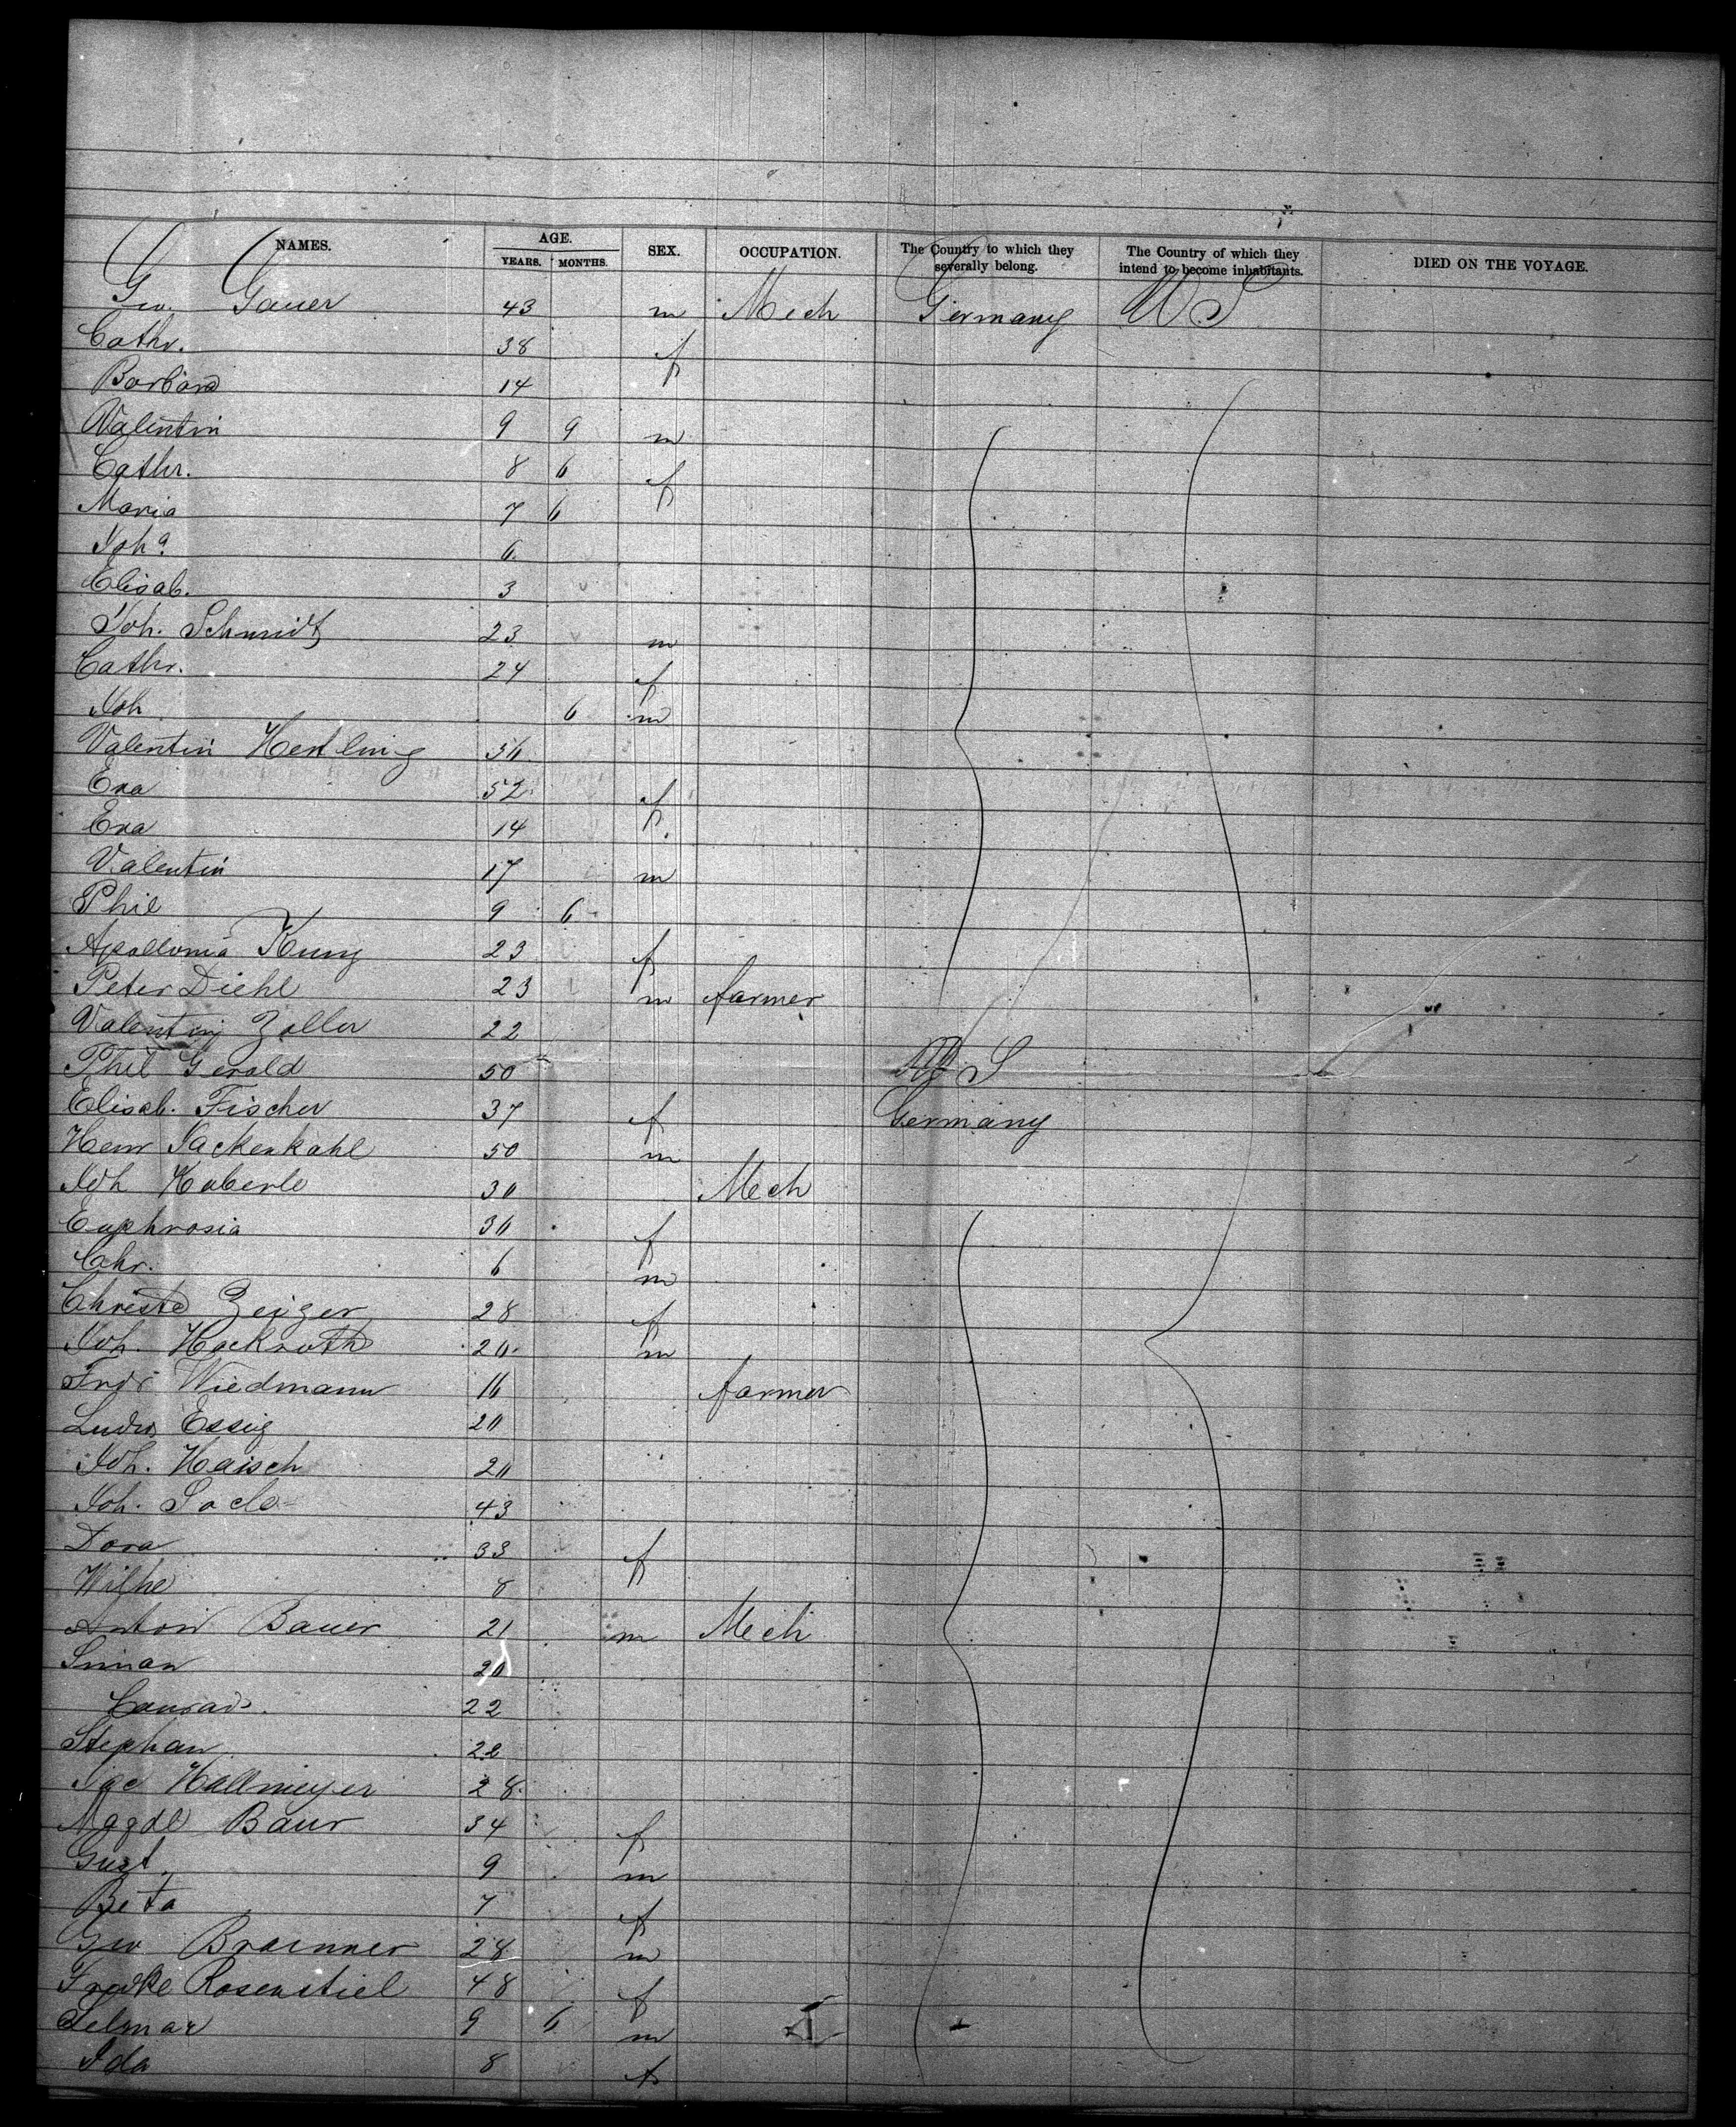 NAMES. AGE. SEX. OCCUPATION. The Country to which they severally belong. The Country of which they intend to become inhabitants. DIED ON THE VOYAGE.
YEARS. MONTHS.
Geo. Gauer 43 m Mech Germany US
Cathr. 38 f
Barbara 14
Valentin 9 9 m
Cathr. 8 6 f
Maria 7 6
Joh? 6
Elisab. 3
Joh. Schmidt 23 m
Cathr. 24 f
Joh 6 m
Valentin Hertling 56
Eva 52 f
Eva 14
Valentin 17 m
Phil 9 6
Apollonia Kung 23 f
Peter Diehl 23 m farmer
Valentin Zoller 22
Phil Gerold 50 US
Elisab. Fischer 37 f Germany
Henr Sackenkahl 50 m
Joh Haberle 30 Mech
Euphrosia 30 f
Chr. 6 m
Christe Zeizer 28 f
Joh. Hackroth 20 m
Frdr Wiedmann 16 farmer
Ludw Essig 20
Joh. Haisch 20
Joh. 43
Dora 33 f
Wilhe 8
Anton Bauer 21 m Mech
Simon 20
Conrad. 22
Stephan 22
Jac Hallmeyer 28
Magdl Baur 34 f
Gust. 9 m
Beta 7 f
Geo Brainner 28 m
Rosenstiel 48 f
Selmar 9 6 m
Ida 8 f